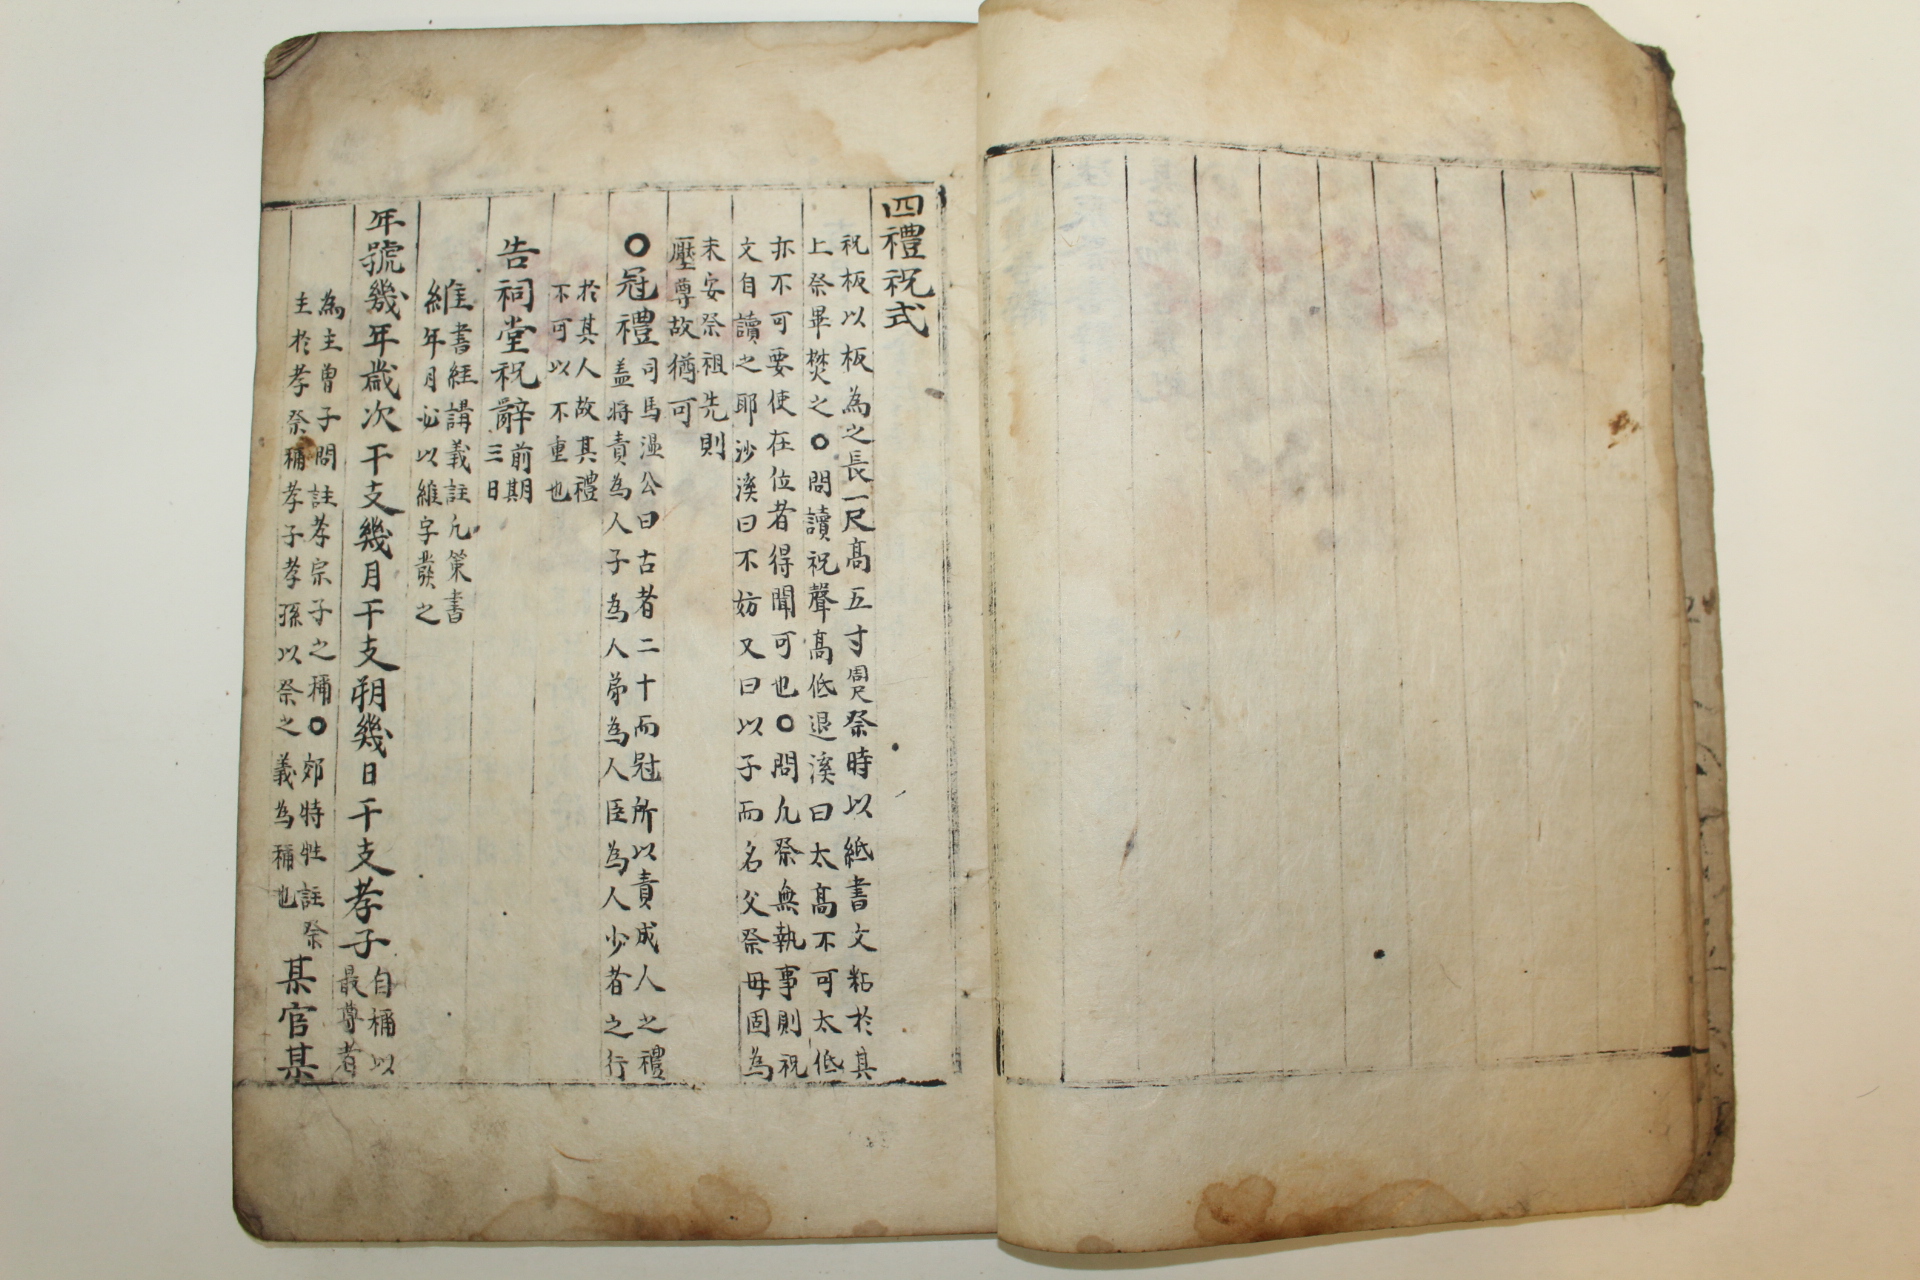 四禮祝式
祝板以板為之長一尺高五寸周尺祭時以紙書文粘於其
上祭畢焚之○問讀祝聲高低退溪曰太高不可太低
亦不可要使在位者得聞可也○問凡祭無執事則祝
文自讀之耶沙溪曰不妨又曰以子而名父祭母固為
未安祭祖先則
壓尊故猶可
○冠禮司馬温公曰古者二十而冠所以責成人之禮
盖將責為人子為人弟為人臣為人少者之行
於其人故其禮
不可以不重也
告祠堂祝辭前期
三日
維書經講義註凡策書
年月必以維字發之
年號幾年歲次干支幾月干支朔幾日干支孝子自稱以
最尊者
為主曾子問註孝宗子之稱○郊特牲註祭
主於孝祭稱孝子孝孫以祭之義為稱也
某官某